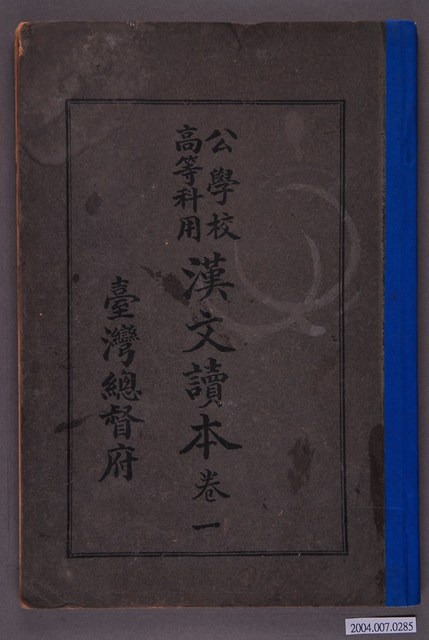 公學校
高等科用
漢文讀本 卷一
臺灣總督府
2004.007.0285